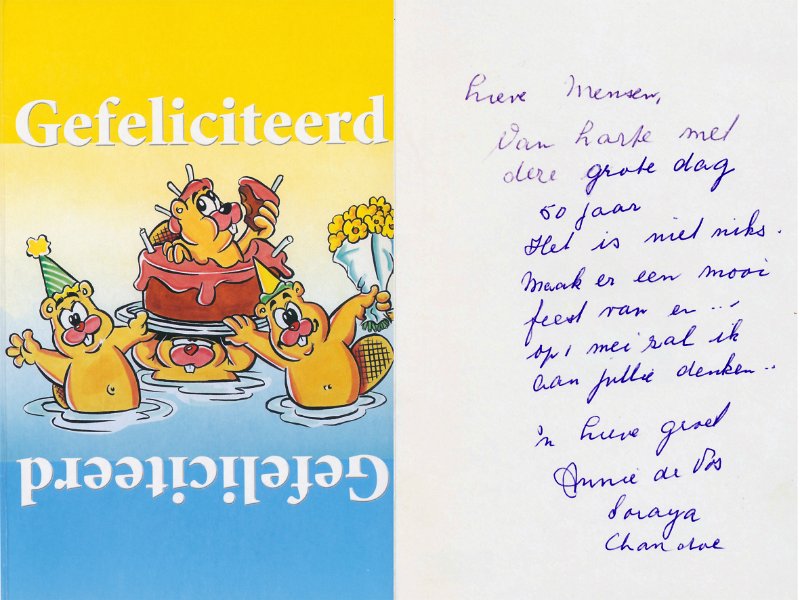 Gefeliciteerd
Gefeliciteerd
Lieve Mensen,
Van harte met
deze grote dag
50 jaar
Het is niet niks.
Maak er een mooi
feest van en ...,
op 1 mei zal ik
aan jullie denken..
'n Lieve groet
Annie de Vos
Soraya